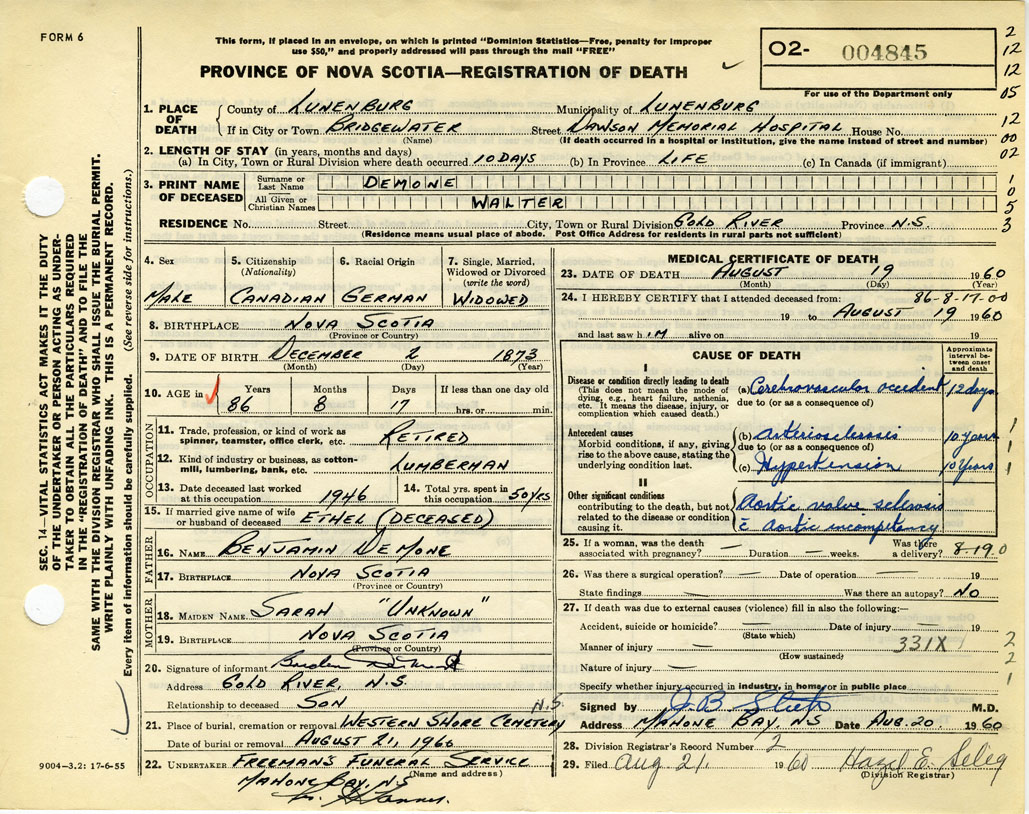 FORM 6
This form, if placed in an envelope, on which is printed "Dominion Statistics—Free, penalty for improper
use $50," and properly addressed will pass through the mail "FREE"
O2- 004845
For use of the Department only
PROVINCE OF NOVA SCOTIA—REGISTRATION OF DEATH
2
12
12
05
12
00
02
1
0
5
3
1. PLACE OF DEATH
County of LUNENBURG Municipality of LUNENBURG
If in City or Town BRIDGEWATER Street DAWSON MEMORIAL HOSPITAL House No.
(Name) (If death occurred in a hospital or institution, give the name instead of street and number)
2. LENGTH OF STAY (in years, months and days)
(a) In City, Town or Rural Division where death occurred 10 DAYS (b) In Province LIFE (c) In Canada (if immigrant)
3. PRINT NAME OF DECEASED
Surname or Last Name DEMONE
All Given or Christian Names WALTER
RESIDENCE No. Street City, Town or Rural Division GOLD RIVER Province N.S.
(Residence means usual place of abode. Post Office Address for residents in rural parts not sufficient)
4. Sex
MALE
5. Citizenship
(Nationality)
CANADIAN
6. Racial Origin
GERMAN
7. Single, Married,
Widowed or Divorced
(write the word)
WIDOWED
8. BIRTHPLACE NOVA SCOTIA
(Province or Country)
9. DATE OF BIRTH DECEMBER 2 1873
(Month) (Day) (Year)
10. AGE in
Years Months Days If less than one day old
86 8 17 hrs. or min.
OCCUPATION
11. Trade, profession, or kind of work as
spinner, teamster, office clerk, etc. RETIRED
12. Kind of industry or business, as cotton-
mill, lumbering, bank, etc. LUMBERMAN
13. Date deceased last worked
at this occupation 1946
14. Total yrs. spent in
this occupation 50 YRS
15. If married give name of wife
or husband of deceased ETHEL (DECEASED)
FATHER
16. NAME BENJAMIN DEMONE
17. BIRTHPLACE NOVA SCOTIA
(Province or Country)
MOTHER
18. MAIDEN NAME SARAH "UNKNOWN"
19. BIRTHPLACE NOVA SCOTIA
(Province or Country)
20. Signature of informant
Address GOLD RIVER, N.S.
Relationship to deceased SON
21. Place of burial, cremation or removal WESTERN SHORE CEMETERY N.S.
Date of burial or removal AUGUST 21, 1960
22. UNDERTAKER FREEMAN'S FUNERAL SERVICE
(Name and address)
MAHONE BAY, N.S.
9004—3.2: 17-6-55
MEDICAL CERTIFICATE OF DEATH
23. DATE OF DEATH AUGUST 19 1960
(Month) (Day) (Year)
24. I HEREBY CERTIFY that I attended deceased from: 86-8-17-00
19 to AUGUST 19 1960
and last saw h IM alive on 19
CAUSE OF DEATH
Approximate
interval be-
tween onset
and death
I
Disease or condition directly leading to death
(This does not mean the mode of
dying, e.g., heart failure, asthenia,
etc. It means the disease, injury, or
complication which caused death.)
(a) Cerebrovascular accident 12 days
due to (or as a consequence of)
Antecedent causes
Morbid conditions, if any, giving
rise to the above cause, stating the
underlying condition last.
(b) arteriosclerosis 10 years 1
due to (or as a consequence of)
(c) Hypertension 10 years 1
II
Other significant conditions
contributing to the death, but not
related to the disease or condition
causing it.
Aortic valve sclerosis
c̄ aortic incompetency
25. If a woman, was the death
associated with pregnancy? — Duration — weeks.
Was there
a delivery? 8.19.0
26. Was there a surgical operation? — Date of operation — 19
State findings — Was there an autopsy? NO
27. If death was due to external causes (violence) fill in also the following:—
Accident, suicide or homicide? — Date of injury — 19
(State which)
Manner of injury — 331X 2
(How sustained) 2
Nature of injury — 1
Specify whether injury occurred in industry, in home, or in public place
Signed by M.D.
Address MAHONE BAY, N.S Date AUG. 20 1960
28. Division Registrar's Record Number 2
29. Filed Aug 21, 1960 Hazel E. Seleg
(Division Registrar)
SEC. 14—VITAL STATISTICS ACT MAKES IT THE DUTY
OF THE UNDERTAKER OR PERSON ACTING AS UNDER-
TAKER TO OBTAIN ALL THE PARTICULARS REQUIRED
IN THE "REGISTRATION OF DEATH" AND TO FILE THE
SAME WITH THE DIVISION REGISTRAR WHO SHALL ISSUE THE BURIAL PERMIT.
WRITE PLAINLY WITH UNFADING INK. THIS IS A PERMANENT RECORD.
Every item of information should be carefully supplied. (See reverse side for instructions.)